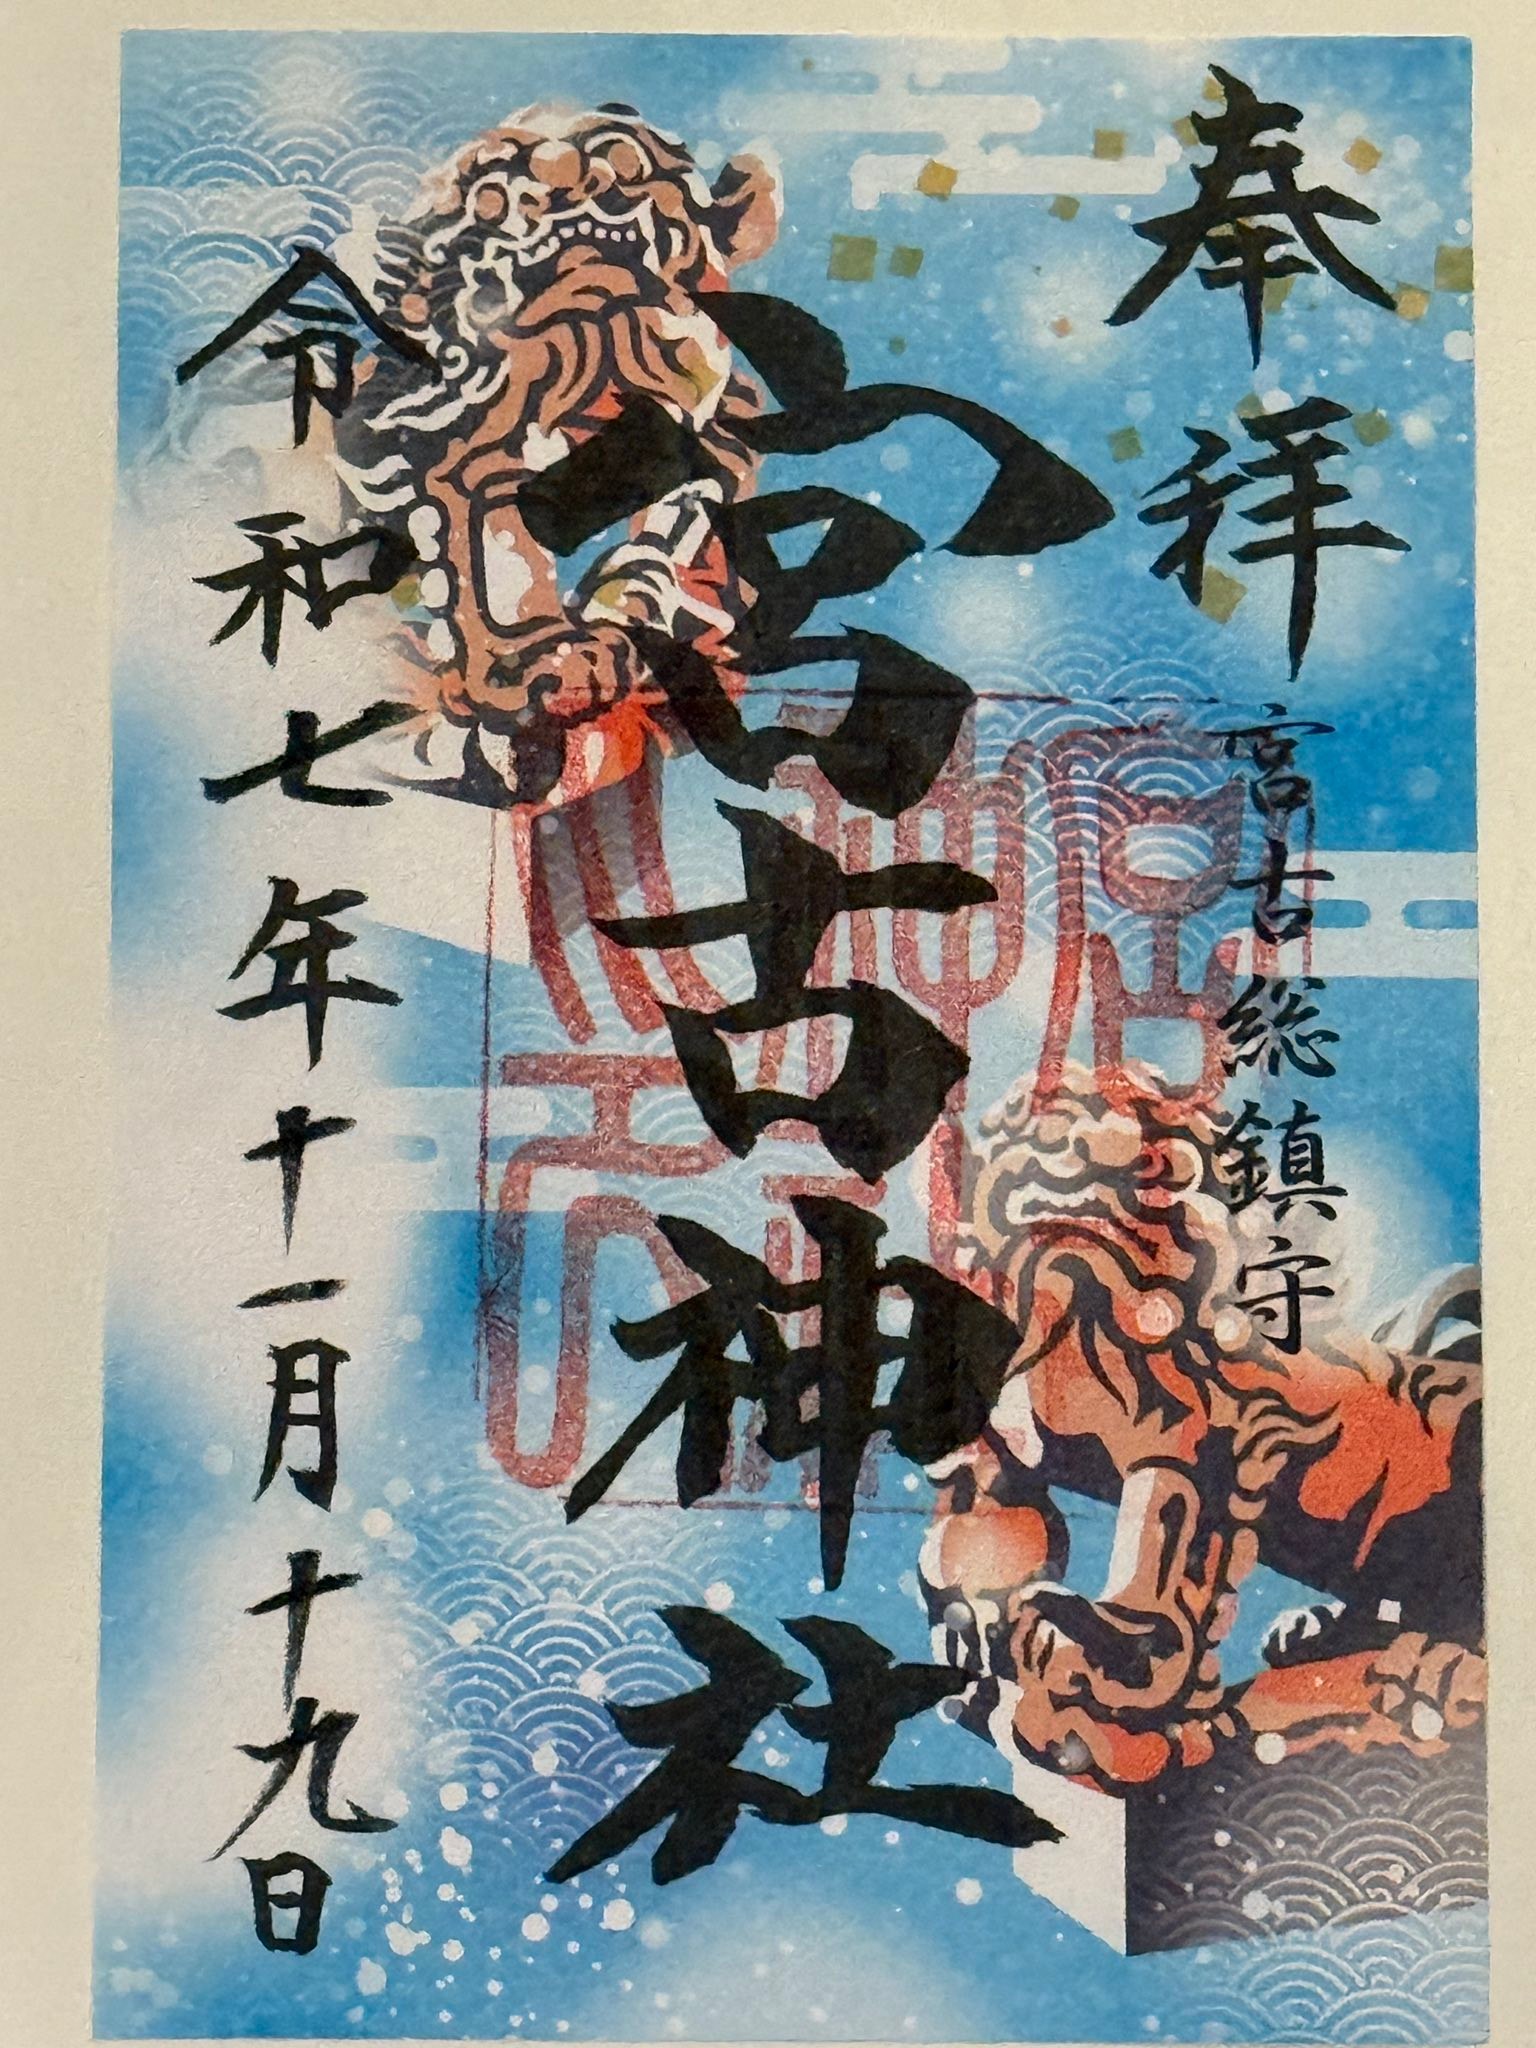 奉拝
宮古総鎮守
宮古神社
令和七年十一月十九日